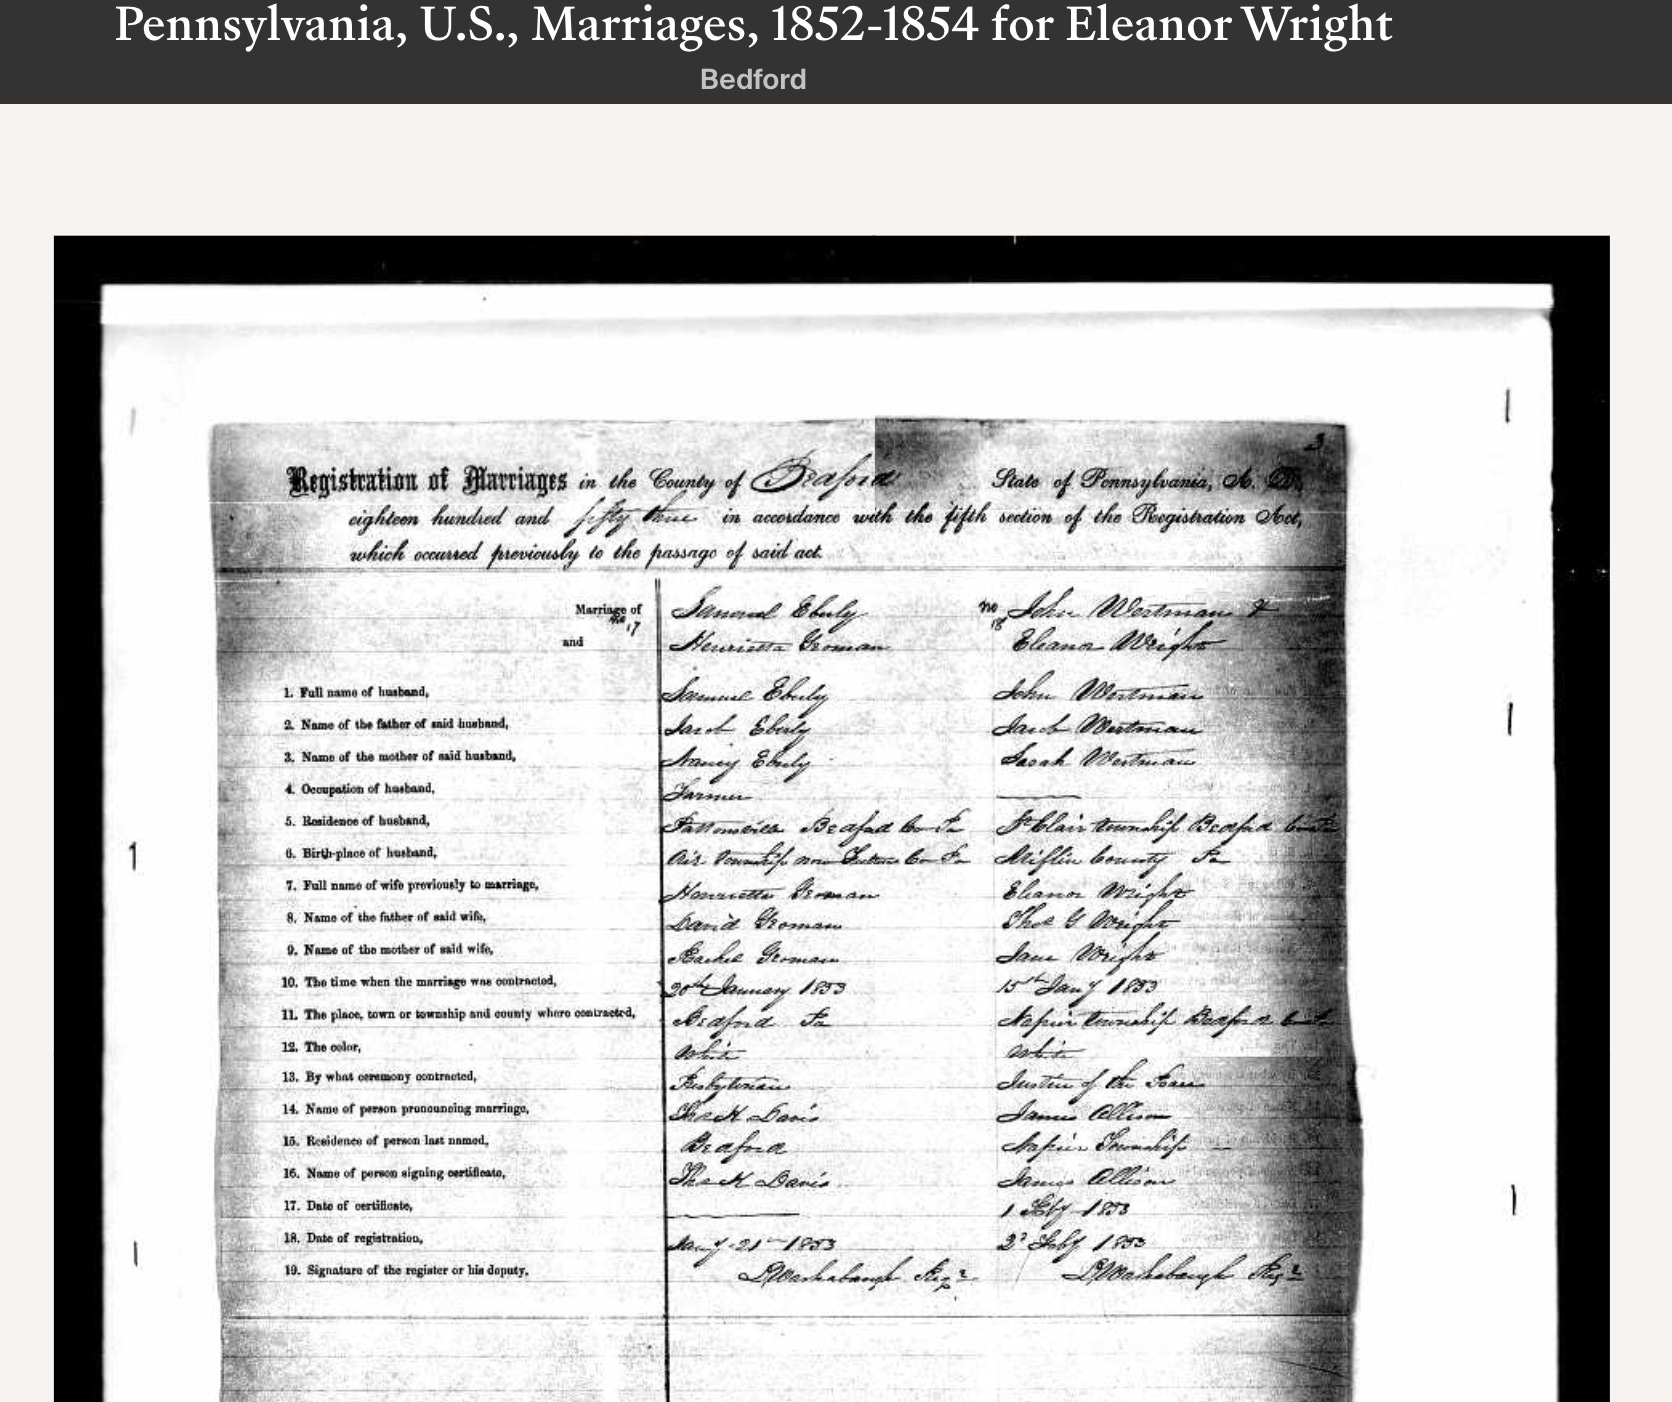 Pennsylvania, U.S., Marriages, 1852-1854 for Eleanor Wright
Bedford
3
Registration of Marriages in the County of Bedford State of Pennsylvania, A. D.
eighteen hundred and fifty three in accordance with the fifth section of the Registration Act,
which occurred previously to the passage of said act.
Marriage of Samuel Eberly no John Wertman &
No 17 18
and Henrietta Groman Eleanor Wright
1. Full name of husband, Samuel Eberly John Wertman
2. Name of the father of said husband, Jacob Eberly Jacob Wertman
3. Name of the mother of said husband, Nancy Eberly Sarah Wertman
4. Occupation of husband, Farmer
5. Residence of husband, Pattonsville Bedford Co Pa St Clair township Bedford
6. Birth-place of husband, Air Township now Fulton Co Pa Mifflin County Pa
7. Full name of wife previously to marriage, Henrietta Groman Eleanor Wright
8. Name of the father of said wife, David Groman Thos G Wright
9. Name of the mother of said wife, Rachel Groman Jane Wright
10. The time when the marriage was contracted, 20th January 1853 15th Jany 1853
11. The place, town or township and county where contracted, Bedford Pa Napier township Bedford
12. The color, White White
13. By what ceremony contracted, Presbyterian Justice of the Peace
14. Name of person pronouncing marriage, Thos K Davis James Allison
15. Residence of person last named, Bedford Napier Township
16. Name of person signing certificate, Thos K Davis James Allison
17. Date of certificate, 1 Feby 1853
18. Date of registration, Jany 21st 1853 2d Feby 1853
19. Signature of the register or his deputy, D Washabaugh Regr D Washabaugh Regr